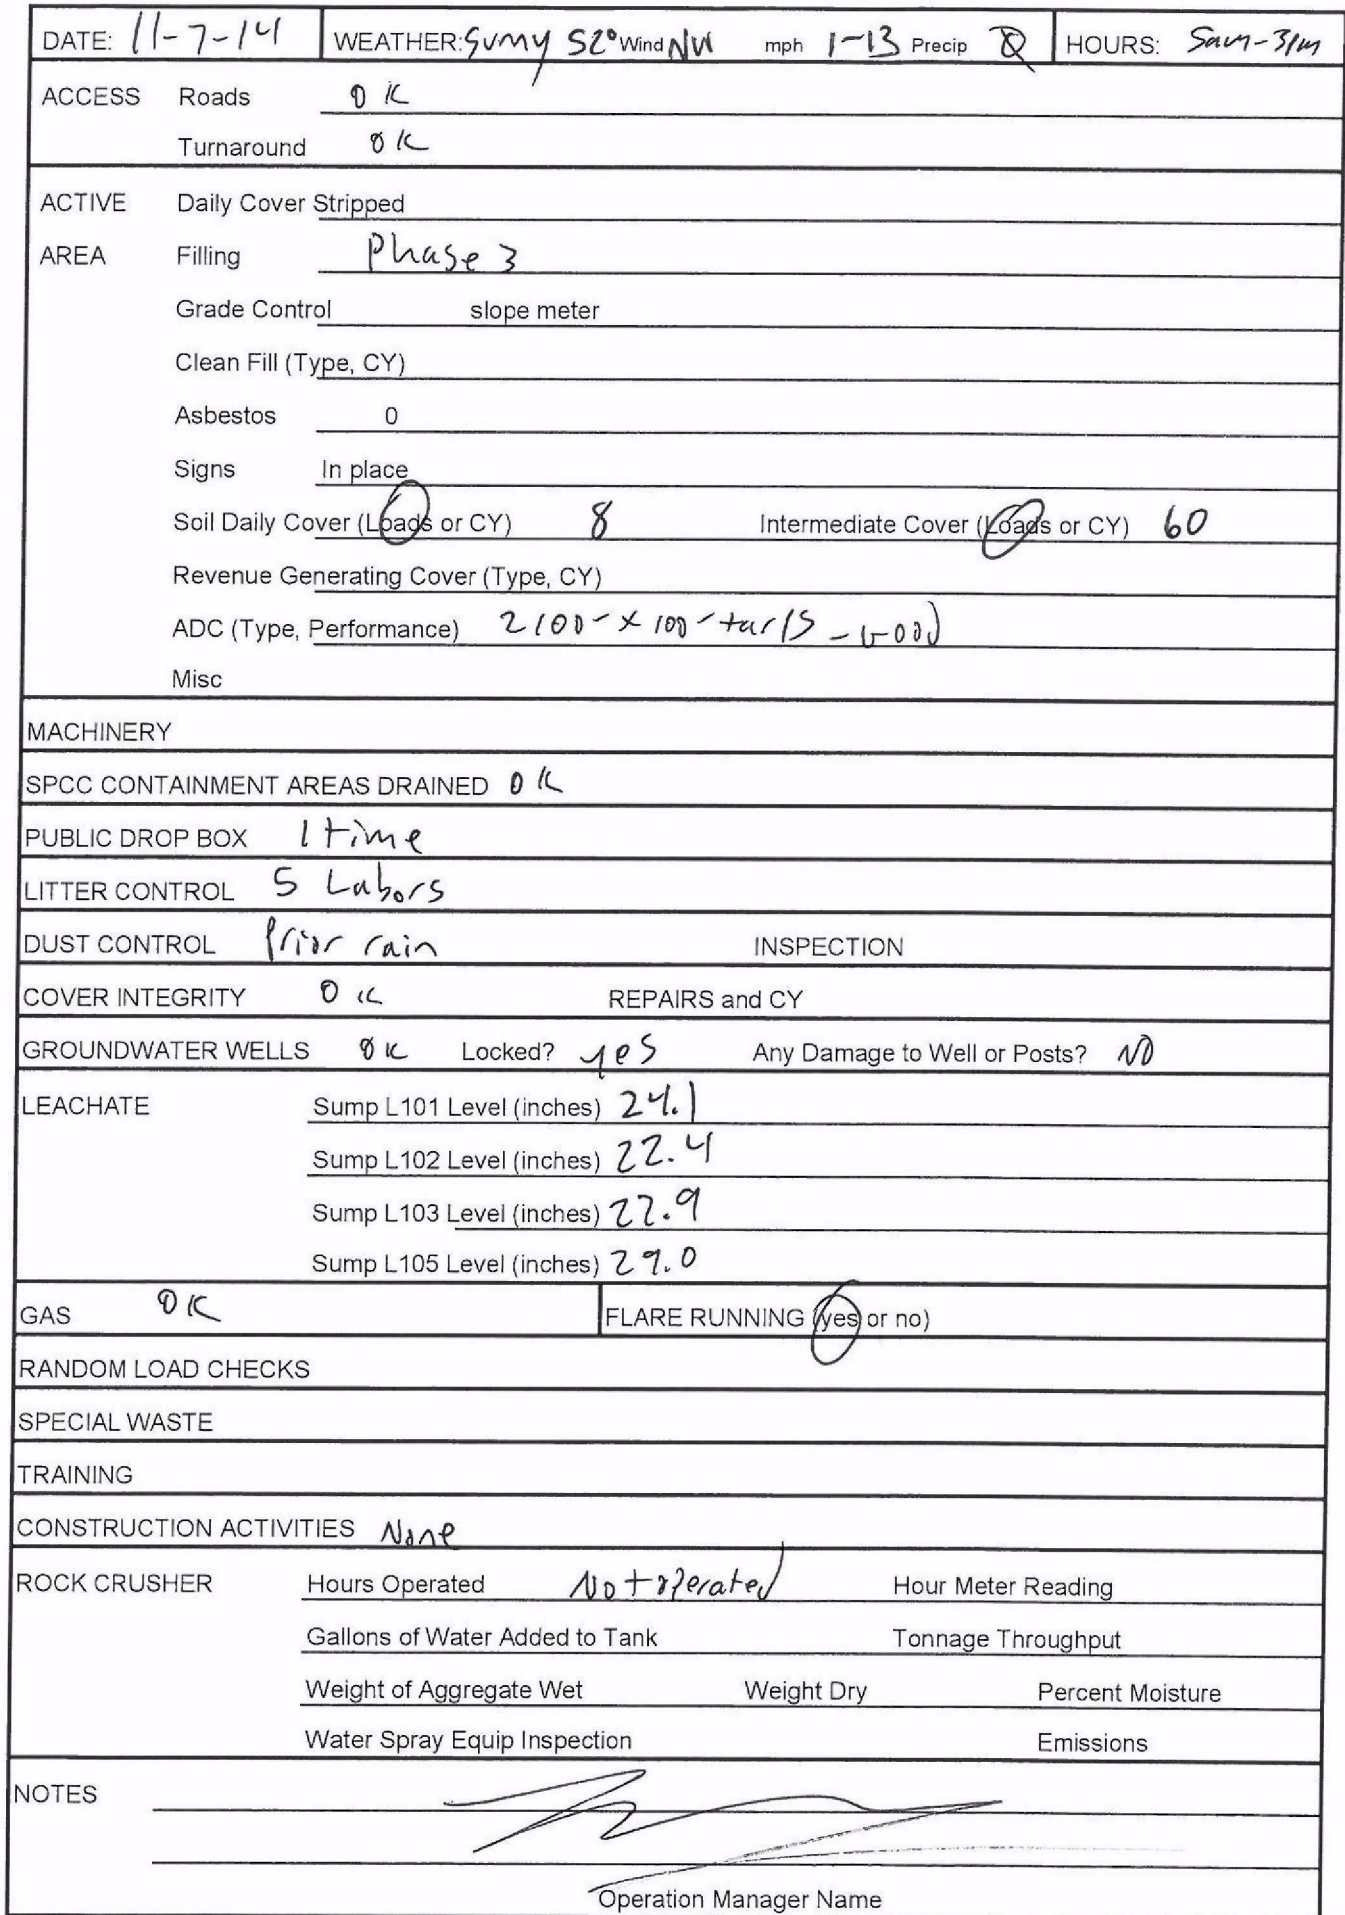 DATE: 11-7-14 WEATHER: Sunny 52° Wind NW mph 1-13 Precip Ø HOURS: 5am-3pm
ACCESS Roads OK
Turnaround OK
ACTIVE Daily Cover Stripped
AREA Filling Phase 3
Grade Control slope meter
Clean Fill (Type, CY)
Asbestos 0
Signs In place
Soil Daily Cover (Loads or CY) 8 Intermediate Cover (Loads or CY) 60
Revenue Generating Cover (Type, CY)
ADC (Type, Performance) 2 100- x 100- tarps - Good
Misc
MACHINERY
SPCC CONTAINMENT AREAS DRAINED OK
PUBLIC DROP BOX 1 time
LITTER CONTROL 5 Labors
DUST CONTROL Prior rain INSPECTION
COVER INTEGRITY OK REPAIRS and CY
GROUNDWATER WELLS OK Locked? yes Any Damage to Well or Posts? NO
LEACHATE Sump L101 Level (inches) 24.1
Sump L102 Level (inches) 22.4
Sump L103 Level (inches) 22.9
Sump L105 Level (inches) 29.0
GAS OK FLARE RUNNING (yes or no)
RANDOM LOAD CHECKS
SPECIAL WASTE
TRAINING
CONSTRUCTION ACTIVITIES None
ROCK CRUSHER Hours Operated Not operated Hour Meter Reading
Gallons of Water Added to Tank Tonnage Throughput
Weight of Aggregate Wet Weight Dry Percent Moisture
Water Spray Equip Inspection Emissions
NOTES
Operation Manager Name